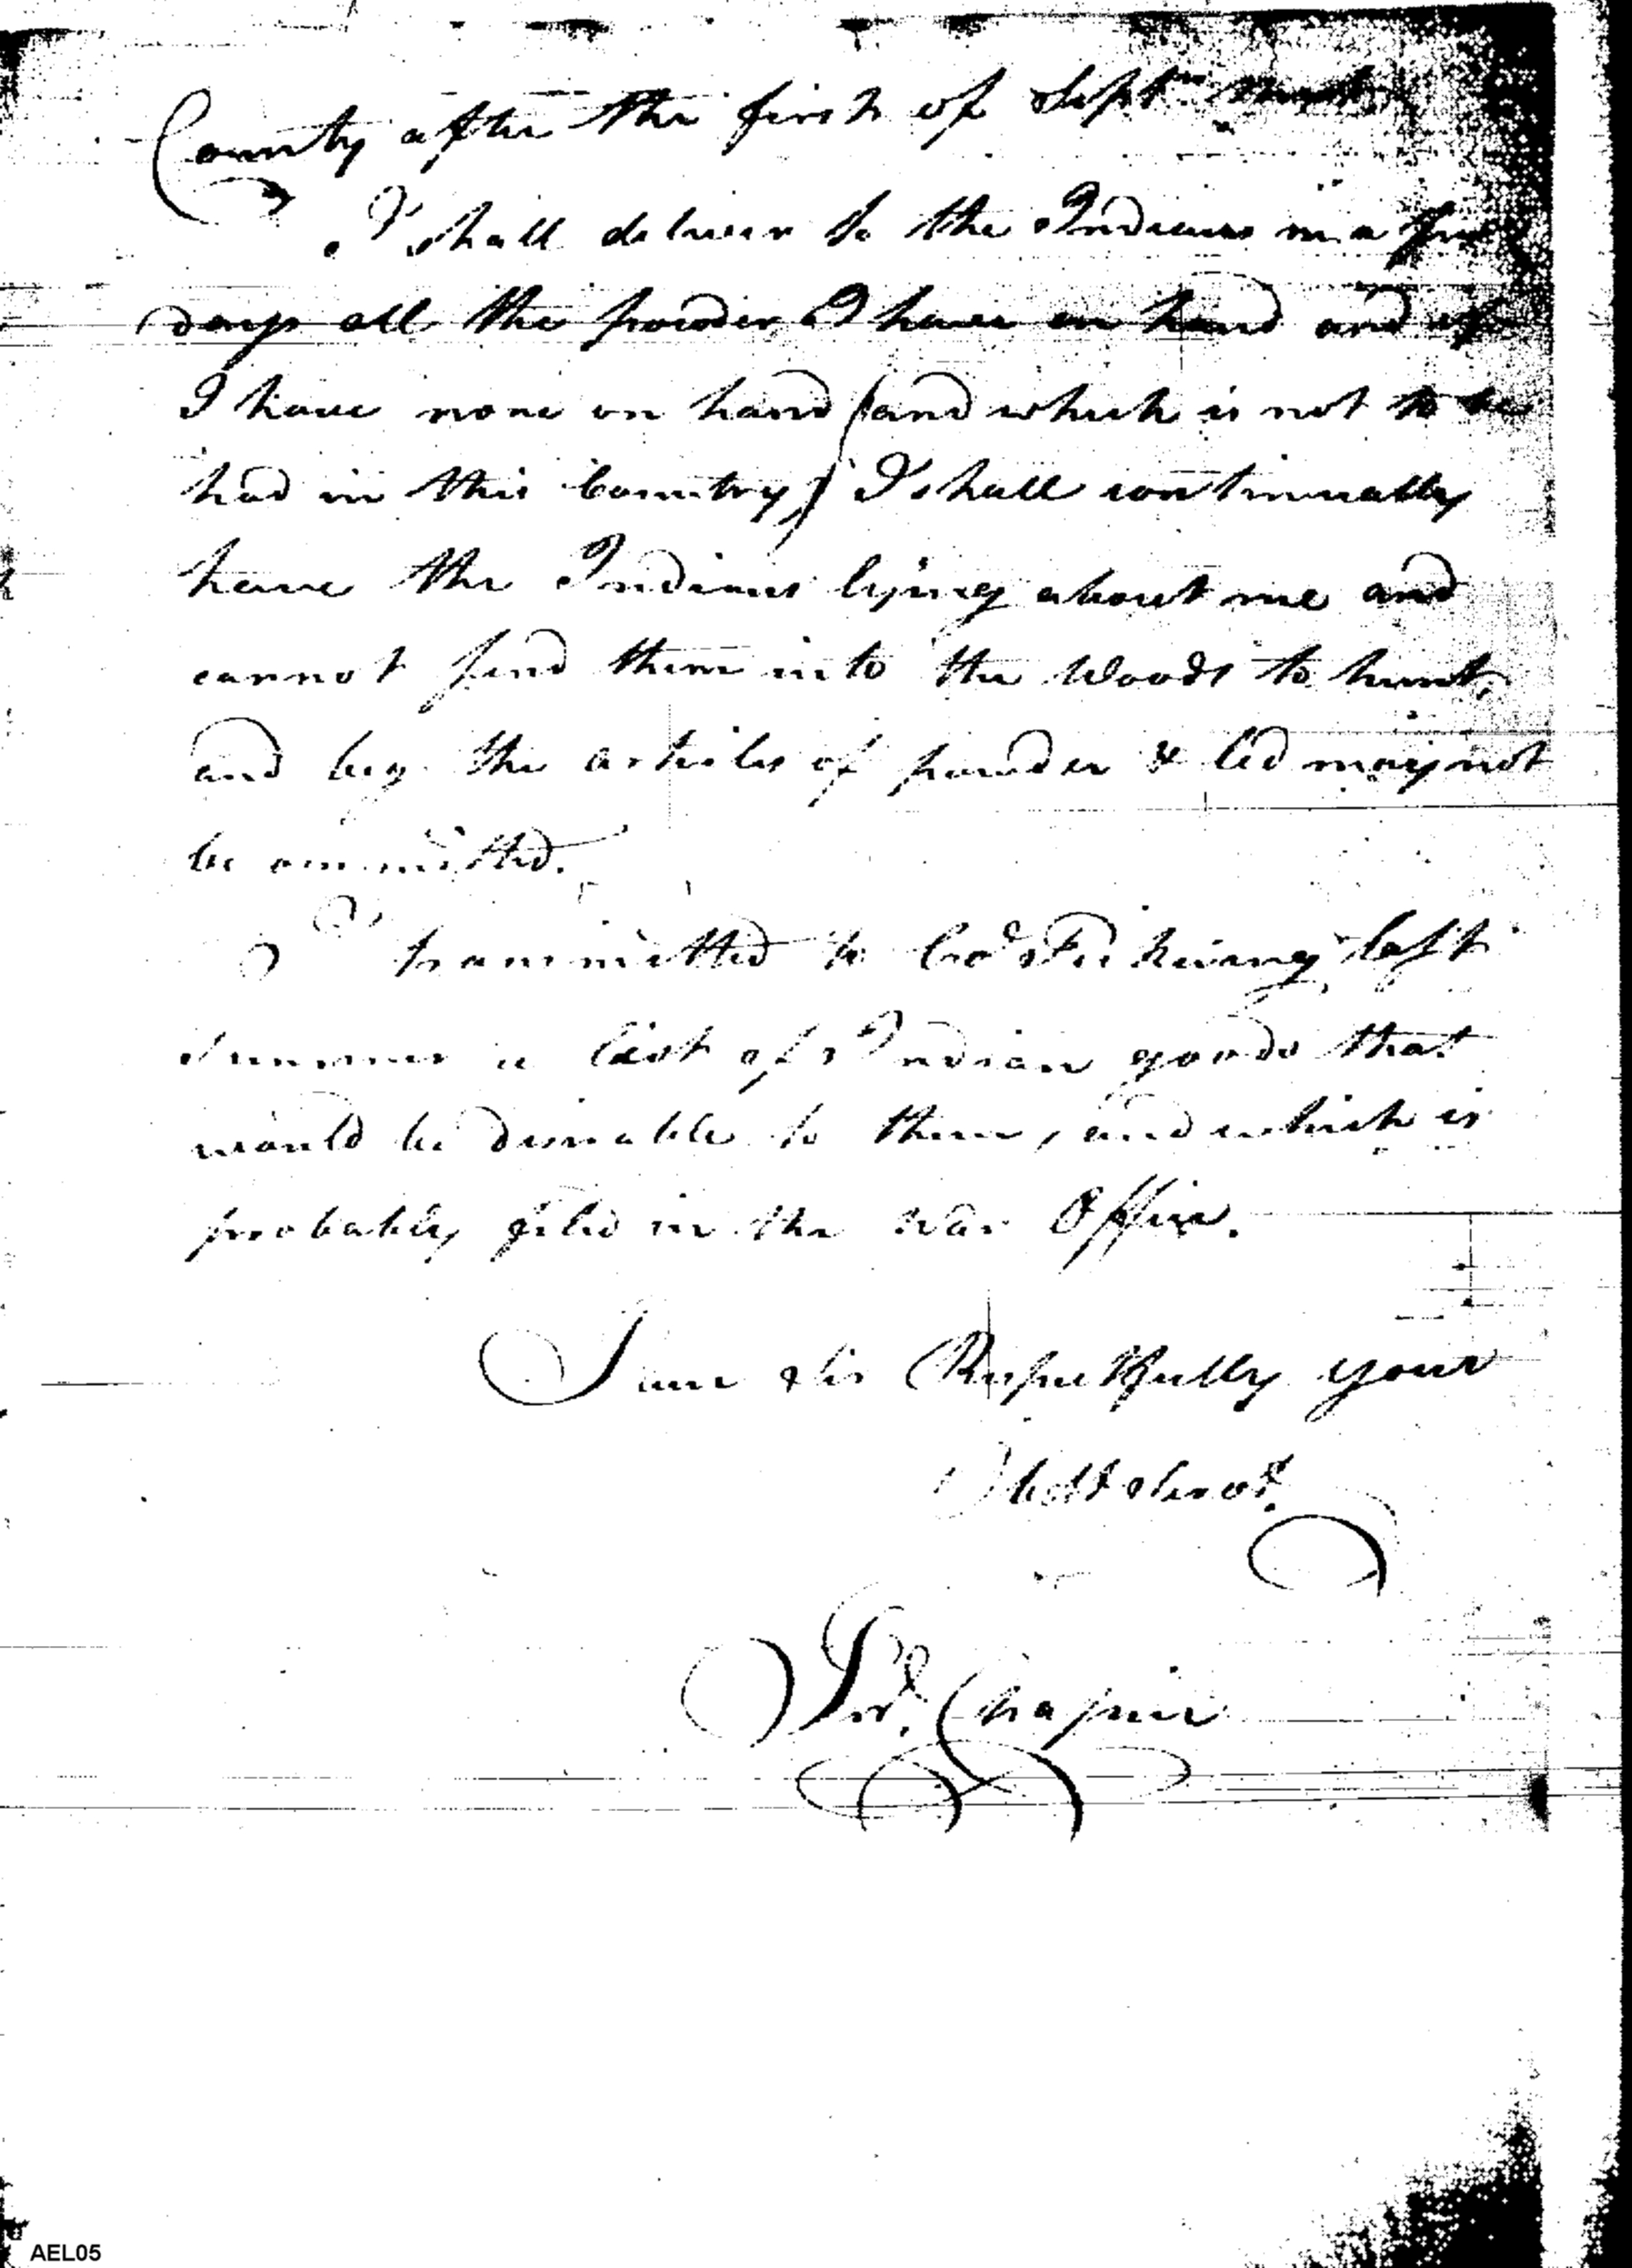 County after the first of Septr next
I shall deliver to the Indians in a few
days all the powder I have on hand and if
I have none on hand (and which is not to be
had in this Country) I shall continually
have the Indians lying about me and
cannot send them into the Woods to hunt,
and beg the articles of powder & led may not
be ommitted.
I transmitted to Col Pickering last
summer a list of Indian goods that
would be disirable to them, and which is
probably filed in the War Office.
I am Sir Respectfully your
Obedt Servt.
Isrl. Chapin
AEL05